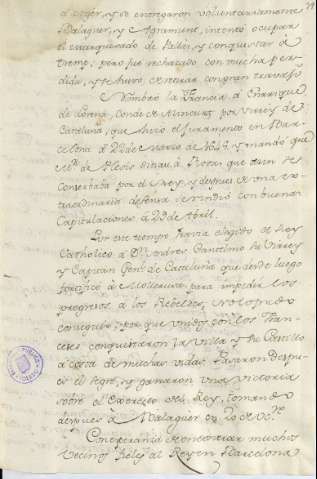 á Ager, y se entregaron voluntariamente
Balaguer, y Agramunt, intentó ocupar
el marquesado de Pallás, y conquistar á
Tremp; pero fue rechazado con mucha per-
dida, y se huvo de retirar con gran trabajo
Nombró la Francia á Enrique
de Lorena, Conde de Arincurt por Virrey de
Cataluña, que hizo el juramento en Bar-
celona á 22 de Marzo de 1645, y mandó que
Mr. de Plesis sitiara á Rosas que aun se
conserbaba por el Rey, y despues de una ex-
traordinaria defensa se rindió con buenas
Capitulaciones á 29 de Abril.
Por este tiempo havia elegido el Rey
Catholico á Dn. Andres Cantelmo de Virrey
y Capitan Genl. de Cataluña que desde luego
á Mollerusa para impedir los
progresos á los Rebeldes, no lo pudo
conseguir, por que unidos con los Fran-
ceses conquistaron la Villa y su Castillo
á costa de muchas vidas. Pasaron despues
el Segre, y ganaron una victoria
sobre el Exercito del Rey, tomando
despues á Balaguer en 20 de
de encontrar muchos
vecinos fieles al Rey en Barcelona